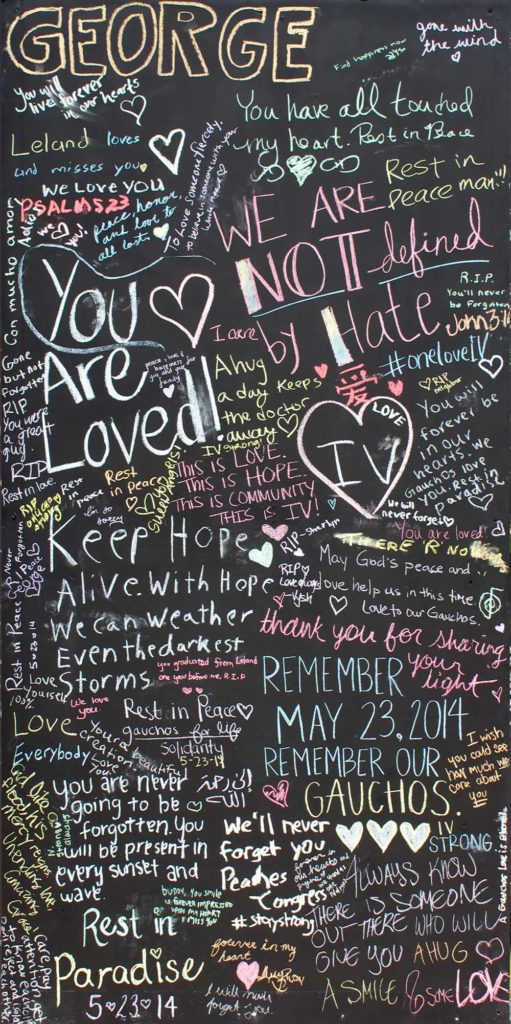 GEORGE
gone with
the wind
Find happiness now
You will
live forever
in our hearts
You have all touched
my heart. Rest in Peace
Leland loves
and misses you
To Love someone fiercely,
WE LOVE YOU
PSALMS 23
We
you!
peace, honor,
and love to
all lost.
Con mucho amor
Adios
Rest in
peace man...
WE ARE
NOT defined
by Hate
R.I.P.
You'll never
be Forgotten
John 3:16
#oneloveIV
You
Are
Loved!
I care
peace, love &
happiness to
you and your
family
A hug
a day keeps
the doctor
away
IV strong!
愛
RIP
You will
forever be
in our
hearts. We
Gauchos love
you. Rest in
Paradise
LOVE
IV
We will
never forget
Gone
but not
Forgotten
RIP
You were
a great
guy!
RIP
Rest in love.
Rest
in
peace
Rest
in Peace
THIS IS LOVE.
THIS IS HOPE.
THIS IS COMMUNITY
THIS IS IV!
You are loved!
THERE 'R' NO
Keep Hope
Alive. With Hope
We can Weather
Even the darkest
Storms
RIP
RIP
Love always
May God's peace and
love help us in this time.
Love to our Gauchos.
thank you for sharing
your
light
Rest in Peace
5-23-2014
Love
Yourself
100%
We love
you
you graduated from Leland
one year before me. R.I.P
REMEMBER
MAY 23, 2014
REMEMBER OUR
GAUCHOS.
IV
STRONG.
I wish
you could see
how much we
care about
you
Rest in Peace
gauchos for life
Solidarity
5-23-14
Love
Everybody
you are never
going to be
forgotten. You
will be present in
every sunset and
wave.
We'll never
forget you
Peaches
Congress
#staystrong
forever in
our hearts
ALWAYS KNOW
THERE IS SOMEONE
OUT THERE WHO WILL
GIVE YOU A HUG
A SMILE & SOME LOVE
BUDDY, YOUR SMILE
IS FOREVER IMPRESSED
UPON MY HEART
I MISS YOU
Rest in
Paradise
5-23-14
forever in my
heart
I will never
forget you.